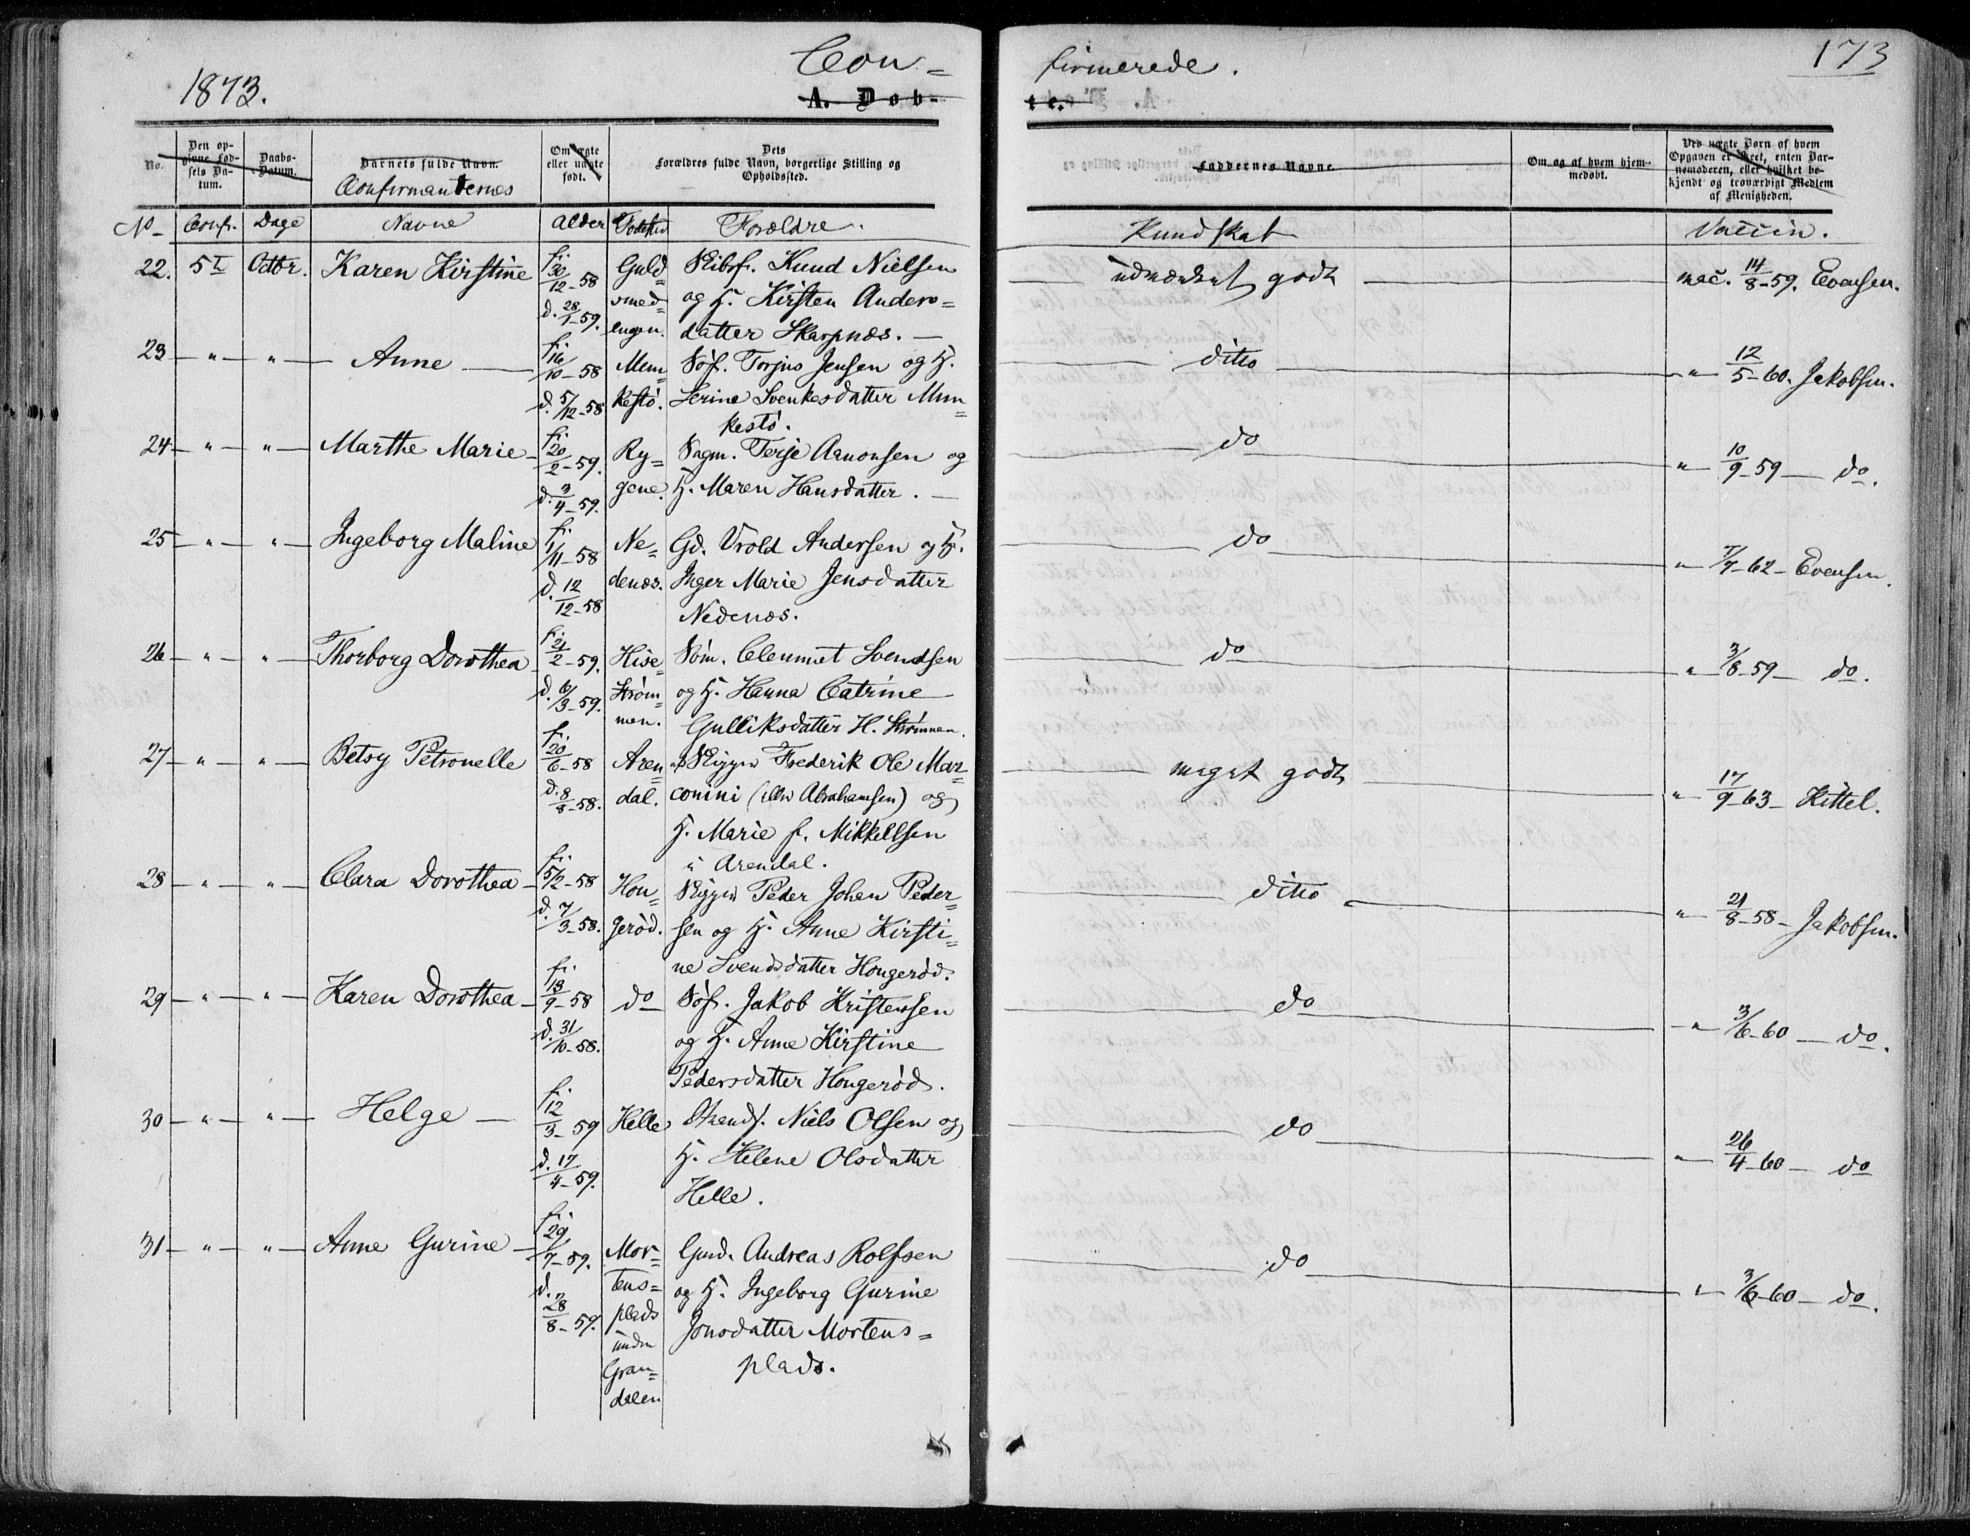 1873.
Con=
firmerede.
173
A. Døb-
te.
No.
Den op-
givne Fød-
sels Da-
tum.
Daabs-
Datum.
Barnets fulde Navn.
Confirmanternes
Om ægte
eller uægte
født.
Dets
Forældres fulde Navn, borgerlige Stilling og
Opholdssted.
Faddernes Navne.
Om og af hvem hjem-
medøbt.
Ved uægte Børn af hvem
Opgaven er skeet, enten Bar-
nemoderen, eller hvilket be-
kjendt og troværdigt Medlem
af Menigheden.
No Conf. Dage Navne Alder Fødested Forældre.
Kundskab Vaccin.
22. 5t Octbr. Karen Kirstine f. 30/12-58 Guld Skibsf. Knud Nielsen udmærket godt vac. 14/8-59. Evensen.
d. 28/1-59. smed og H. Kirsten Anders=
engen. datter Skarpnæs.
23 " " Anne f. 16/10-58 Mun Søf. Torjus Jensen og H. ditto " 12/5-60. Jakobsen.
d. 5/12-58 kestø. Serine Svenkesdatter Mun=
kestø.
24 " " Marthe Marie f. 20/2-59. Ry= Sagm. Terje Aanonsen og do " 10/9-59 do.
d. 3/4-59. gene. H. Maren Hansdatter.
25 " " Ingeborg Maline f. 1/11-58 Ne= Gd. Vrold Andersen og H. do " 7/7-62 Evensen.
d. 12/12-58 denæs. Inger Marie Jensdatter
Nedenæs.
26 " " Thorborg Dorothea f. 21/2-59. Hise Søm. Clemmet Svendsen do " 3/8-59 do.
d. 6/3-59. Strøm= og H. Hanna Catrine
men. Gulliksdatter H. Strømmen.
27 " " Betsy Petronelle f. 20/6-58 Aren= Skipper Frederik Ole Mar= meget godt " 17/9-63 Kittel.
d. 8/8-58. dal. conini (eller Abrahamsen) og
H. Marie f. Mikkelsen
i Arendal.
28 " " Clara Dorothea f. 5/2-58 Hon= Skipper Peder Johan Peder= ditto " 21/8-58 Jakobsen.
d. 7/3-58. gerød. sen og H. Anne Kirsti=
ne Svendsdatter Hongerød.
29 " " Karen Dorothea f. 18/9-58 do Søf. Jakob Kristensen do " 3/6-60 do.
d. 31/10-58. og H. Anne Kirstine
Pedersdatter Hongerød.
30 " " Helge f. 12/3-59 Helle Strandf. Niels Olsen og do " 26/4-60 do
d. 17/4-59. H. Helene Olsdatter
Helle.
31 " " Anne Gurine f. 29/7-59. Mor= Gmd. Andreas Rolfsen do " 3/6-60 do.
d. 28/8-59. tens= og H. Ingeborg Gurine
plads Jonsdatter Mortens=
under plads.
Gran=
dalen